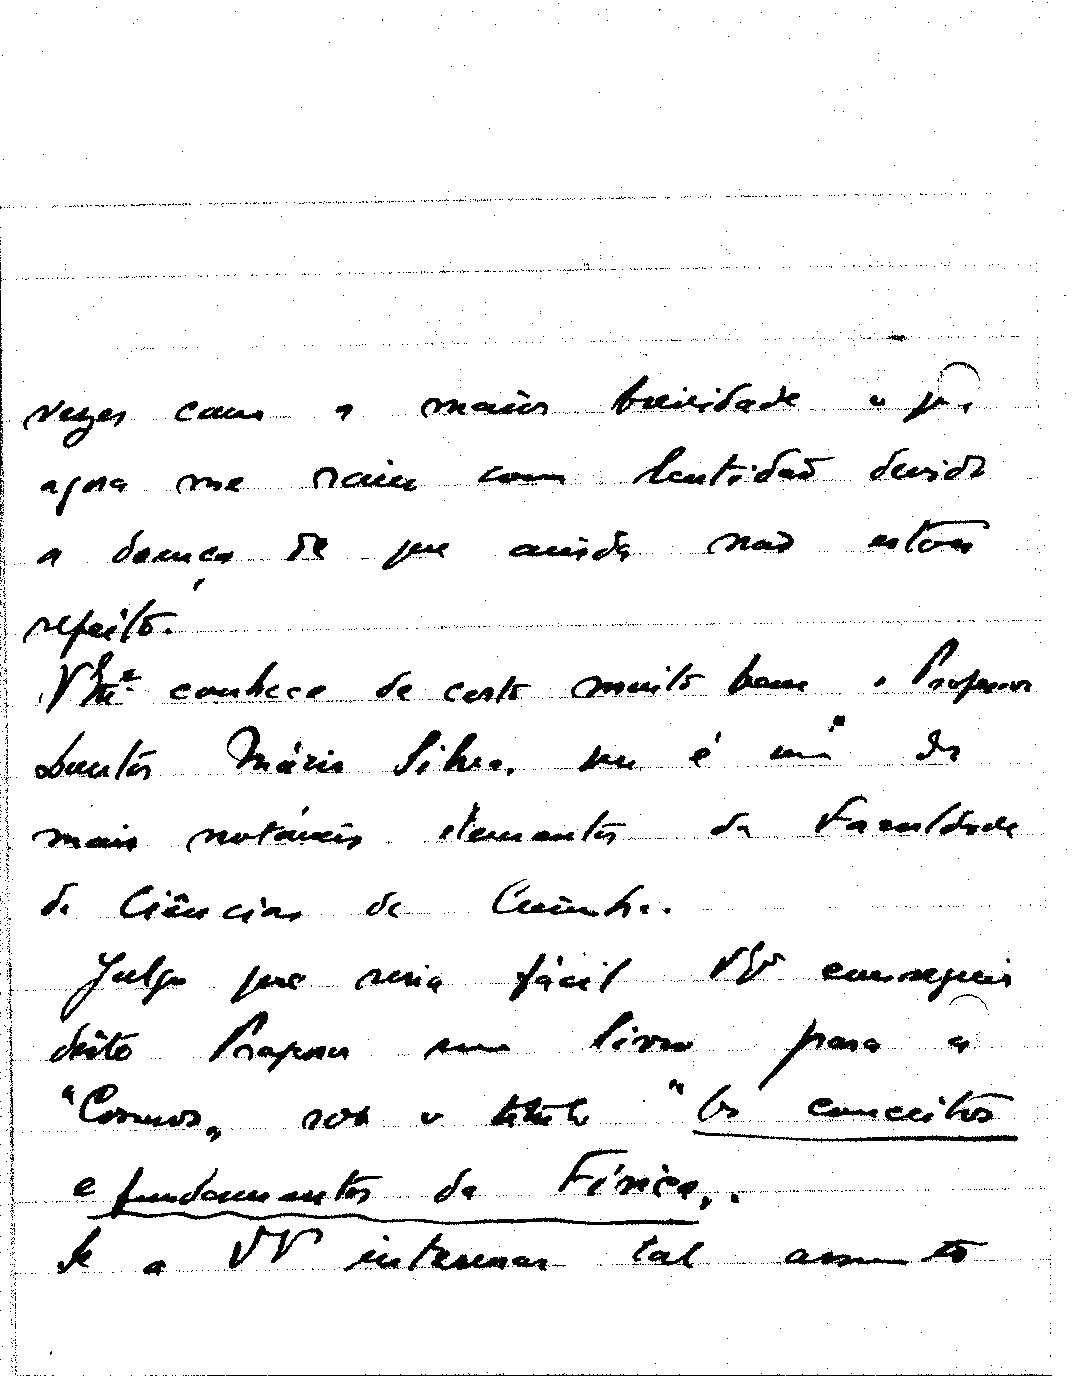 vezes com a maior brevidade o que
agora me raiu com lentidão devido
a doença de que ainda não estou
refeito.
V Ex.ª conhece de certo muito bem o Professor
Doutor Mário Silva, que é um dos
mais notáveis elementos da Faculdade
de Ciências de Coimbra.
Julgo que seria fácil VEx conseguir
deste Professor um livro para a
"Cosmos", sob o título "Os conceitos
e fundamentos da Física".
Se a VV interessar tal assunto